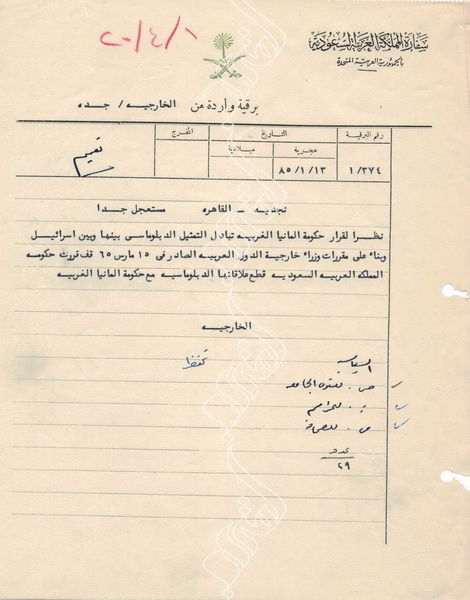 سفارة المملكة العربية السعودية
بالجمهورية العربية المتحدة
٢٠/٤/١
برقية واردة من الخارجيه / جده
رقم البرقية
التاريخ
المخرج
هجرية
ميلادية
١/٣٧٤
٨٥/١/١٣
تعميم
نجديه - القاهره مستعجل جدا
نظرا لقرار حكومة المانيا الغربيه تبادل التمثيل الدبلوماسى بينها وبين اسرائيل
وبناء على مقررات وزراء خارجية الدول العربيه الصادر فى ١٥ مارس ٦٥ قف قررت حكومه
المملكه العربيه السعوديه قطع علاقاتها الدبلوماسيه مع حكومة المانيا الغربيه
الخارجيــه
للمراسم
للصحافة
عدد
٢٩